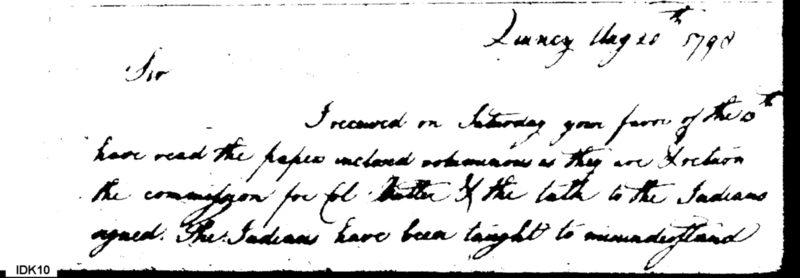 Quincy Aug 20th 1798
Sir
I received on Saturday your favor of the 13th
have read the papers inclosed voluminous as they are & return
the commission for Col Butler & the talk to the Indians
signed. The Indians have been taught to misunderstand
IDK10